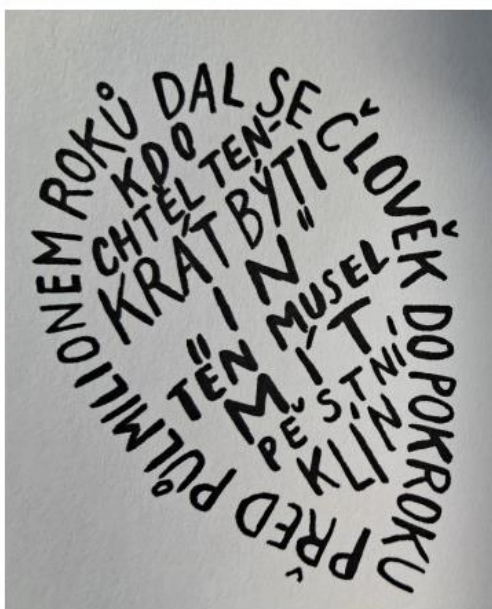 PŘED PŮLMILIONEM ROKŮ DAL SE ČLOVĚK DO POKROKU
KDO
CHTĚL TEN-
KRÁT BÝTI
"IN"
TEN MUSEL
MÍT
PĚSTNÍ
KLÍN